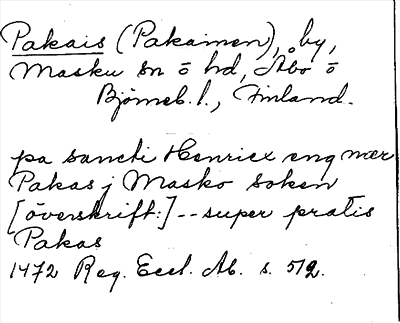 Pakais (Pakainen), by,
Masku sn ō hd, Åbo ō
Björneb. l., Finland.
pa sancti Henricx eng nær
Pakas j Masko soken
[överskrift:] -- super pratis
Pakas
1472 Reg. Eccl. Ab. s. 512.